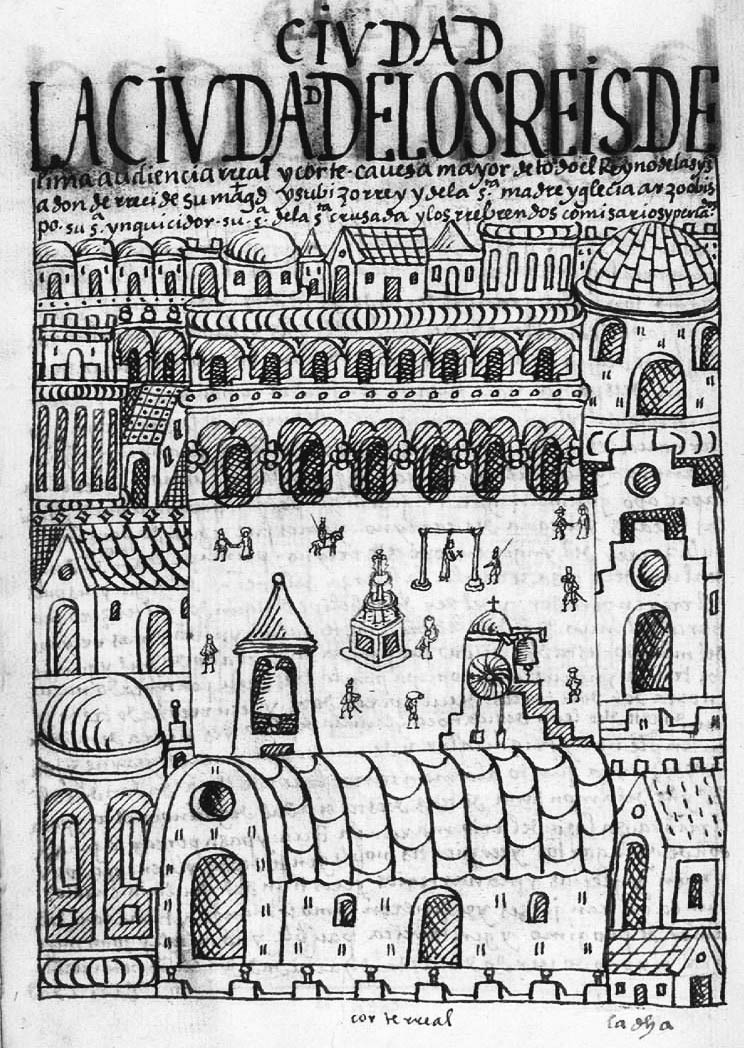 CIVDAD
LA CIVDAD DE LOS REIS DE
lima audiencia rreal y corte · cauesa mayor de todo el Reyno de las yⁿs
adonde rrecide su magᵈ y su bizorrey y de la s.ᵗᵃ madre yglecia arzobis
po · su s.ᵃ ynquicidor · su · s.ᵃ de la s.ᵗᵃ crusada y los rreberendos comisarios y perlados
corte rreal